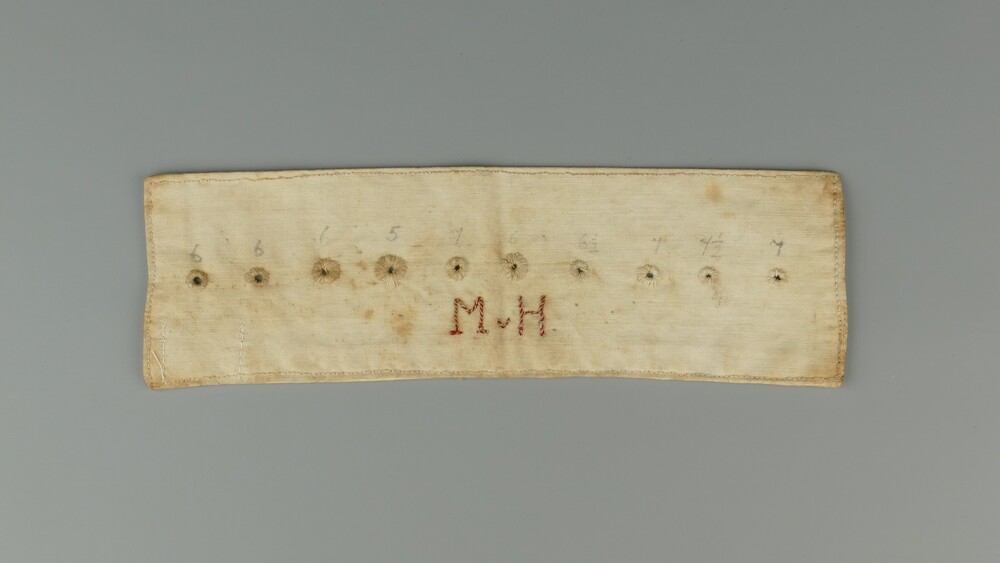 6 6 6 5 7 6 6½ 7 4½ 7
MvH